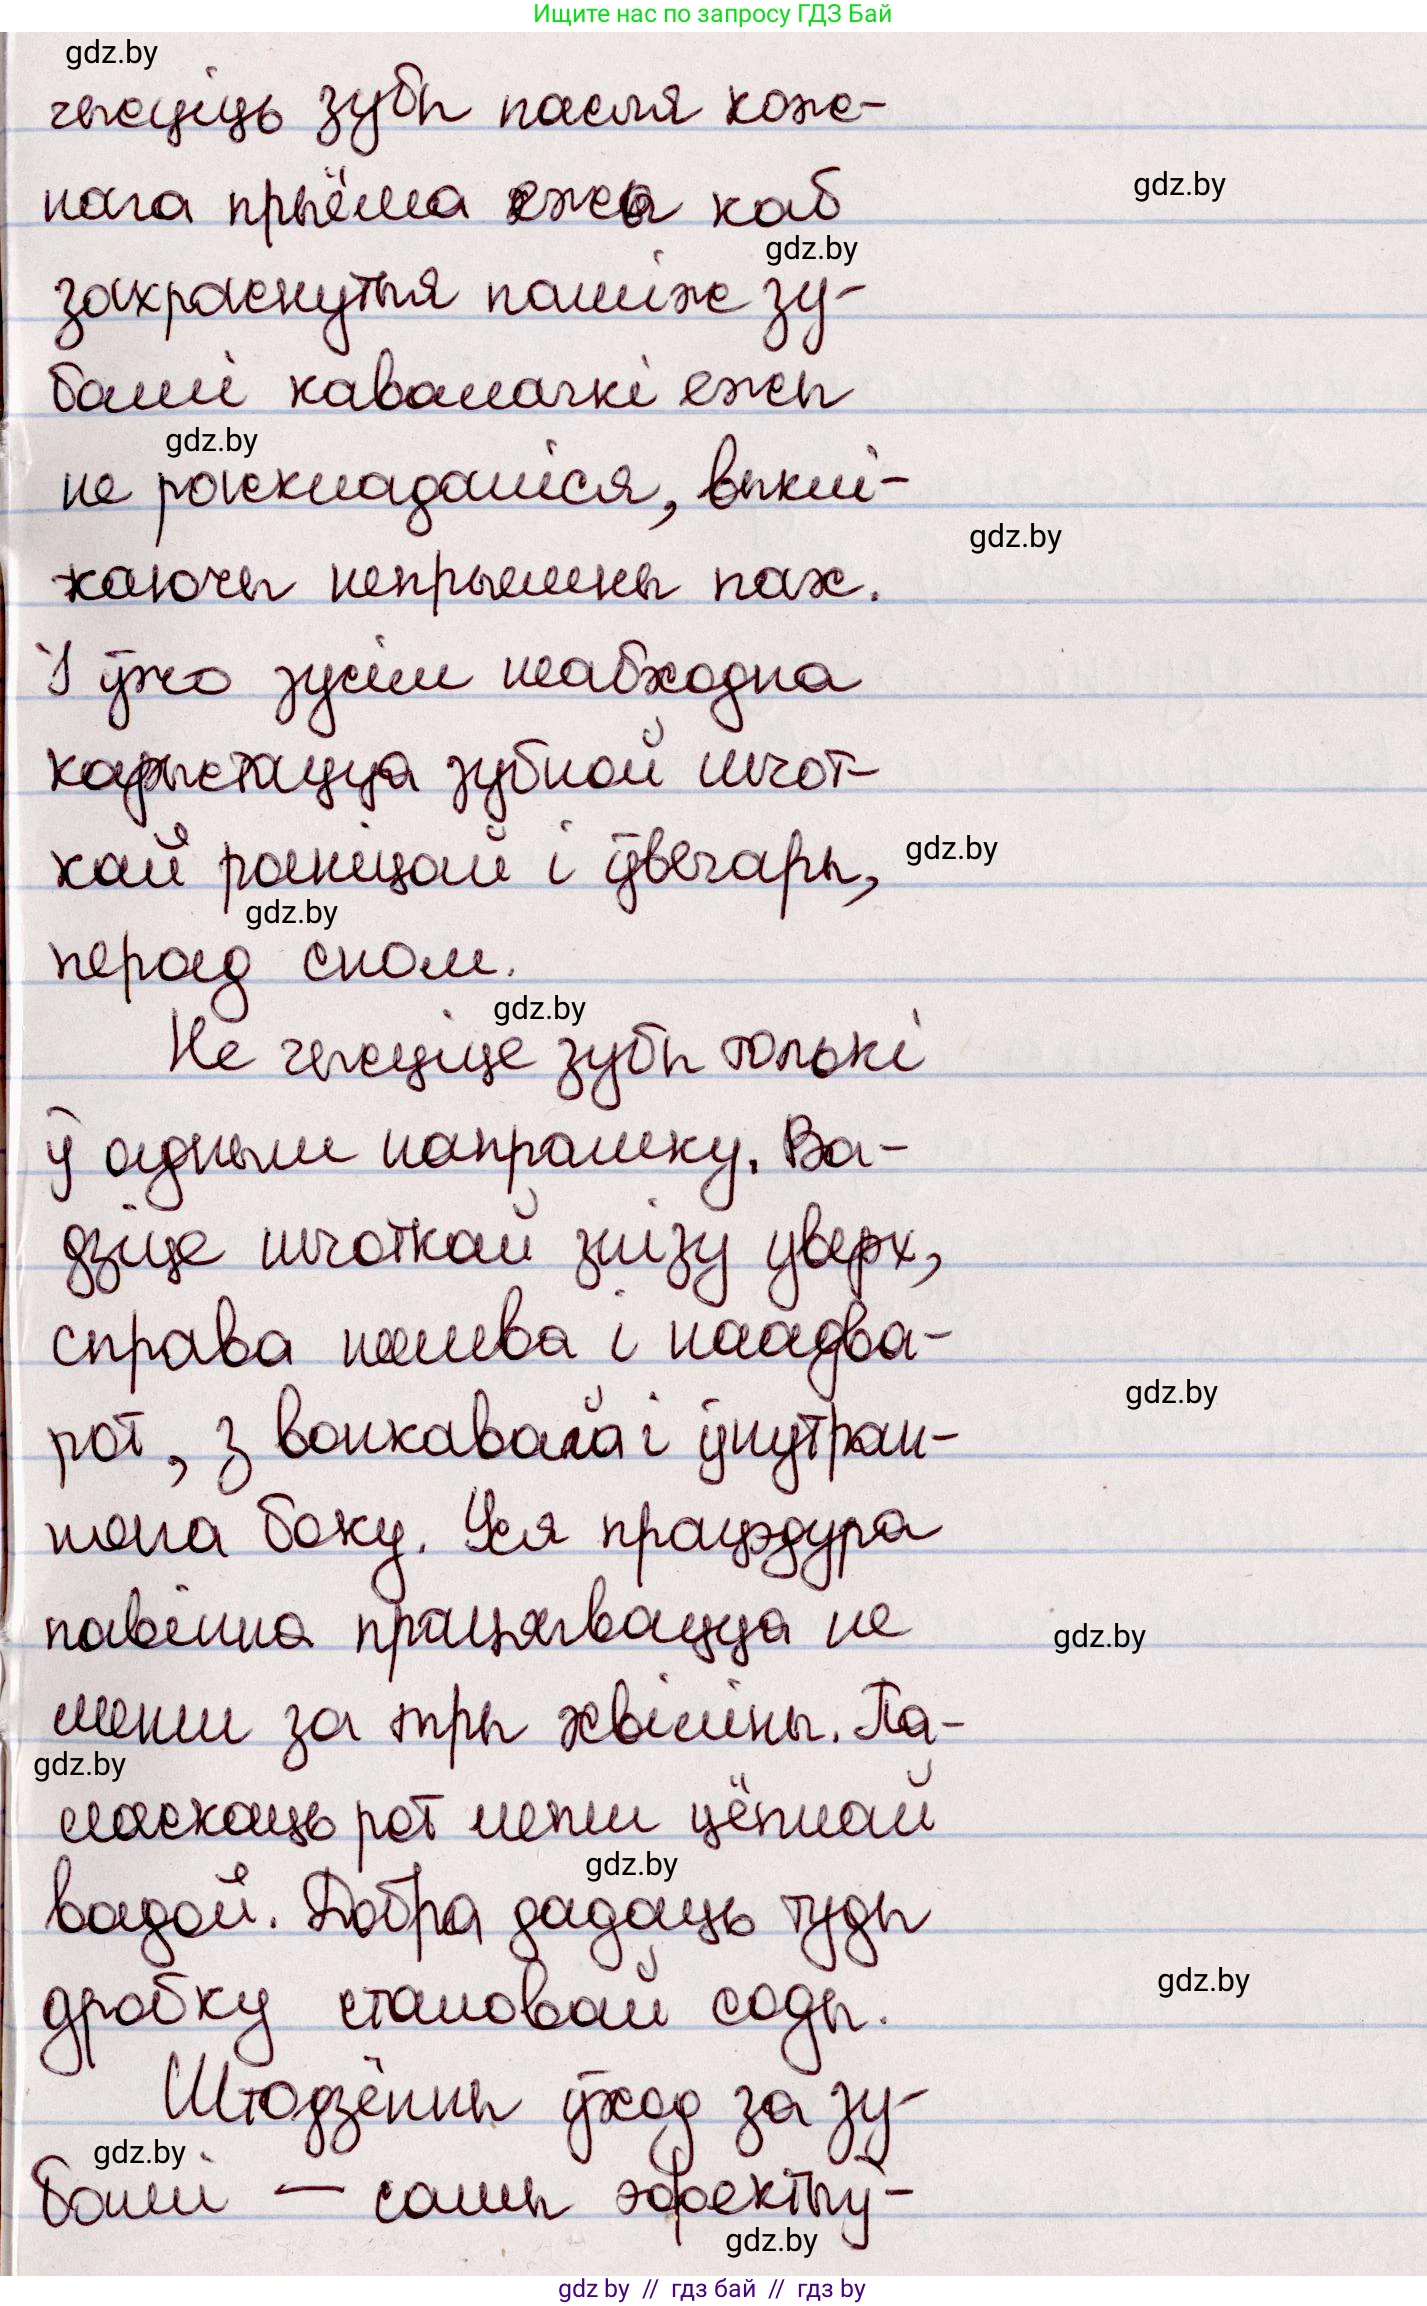 Ищите нас по запросу ГДЗ Бай
gdz.by
чысціць зубы пасля кож-
нага прыёма ежы каб
gdz.by
gdz.by
захраснутыя паміж зу-
бамі кавалачкі ежы
gdz.by
не раскладаліся, выклі-
gdz.by
каючы непрыемны пах.
І ўжо зусім неабходна
карыстацца зубной шчот-
кай раніцай і ўвечары,
gdz.by
gdz.by
перад сном.
gdz.by
Не чысціце зубы толькі
ў адным напрамку. Ва-
дзіце шчоткай знізу уверх,
справа налева і наадва-
gdz.by
рот, з вонкавай і ўнутран-
нага боку. Уся працэдура
павінна працягвацца не
gdz.by
менш за тры хвіліны. Па-
gdz.by
ласкаць рот лепш цёплай
gdz.by
вадой. Добра дадаць туды
gdz.by
дробку сталовай соды.
Штодзённы ўход за зу-
gdz.by
бамі — самы эфектыў-
gdz.by
gdz by // гдз бай // гдз by